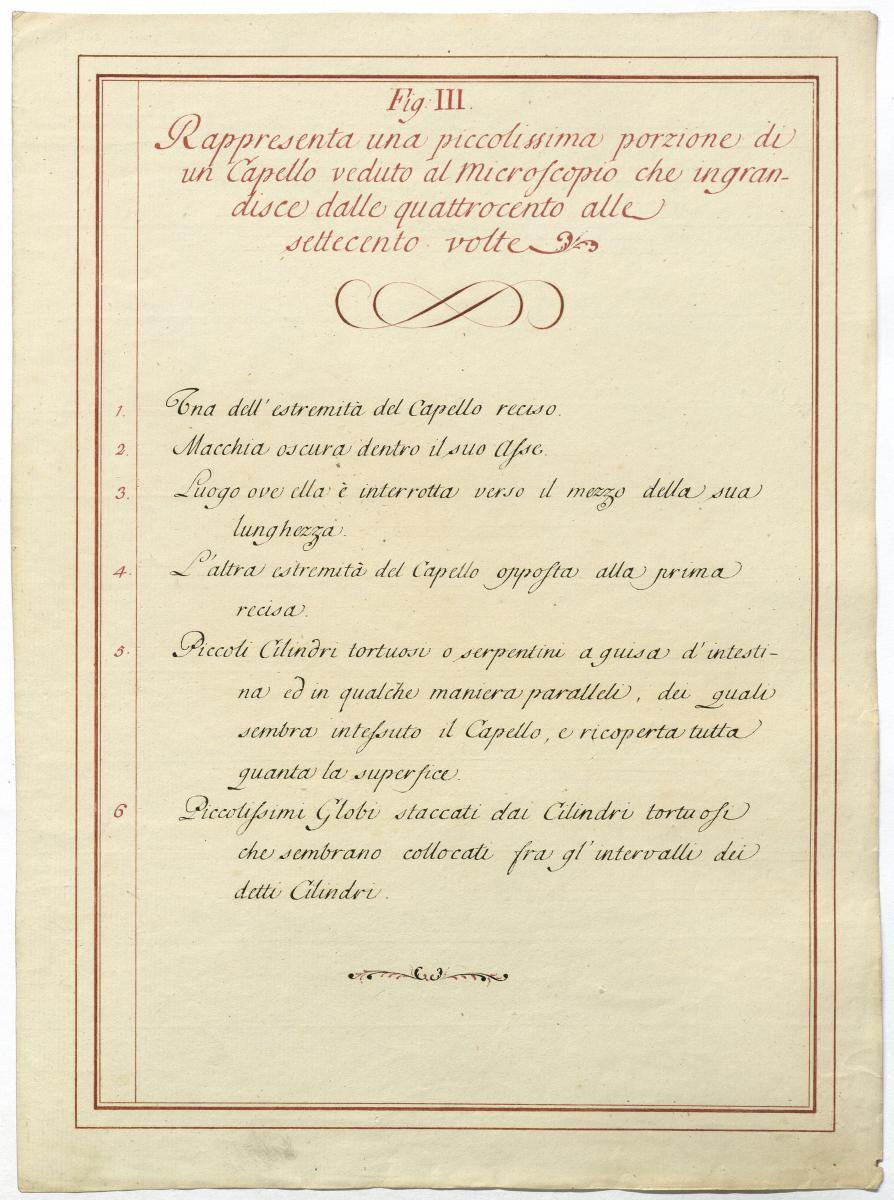 Fig. III.
Rappresenta una piccolissima porzione di
un Capello veduto al Microscopio che ingran-
disce dalle quattrocento alle
settecento volte
1. Una dell' estremità del Capello reciso.
2. Macchia oscura dentro il suo Asse.
3. Luogo ove ella è interrotta verso il mezzo della sua
lunghezza.
4. L'altra estremità del Capello opposta alla prima
recisa.
5. Piccoli Cilindri tortuosi o serpentini a guisa d'intesti-
na ed in qualche maniera paralleli, dei quali
sembra intessuto il Capello, e ricoperta tutta
quanta la superfice.
6 Piccolissimi Globi staccati dai Cilindri tortuosi
che sembrano collocati fra gl'intervalli dei
detti Cilindri.